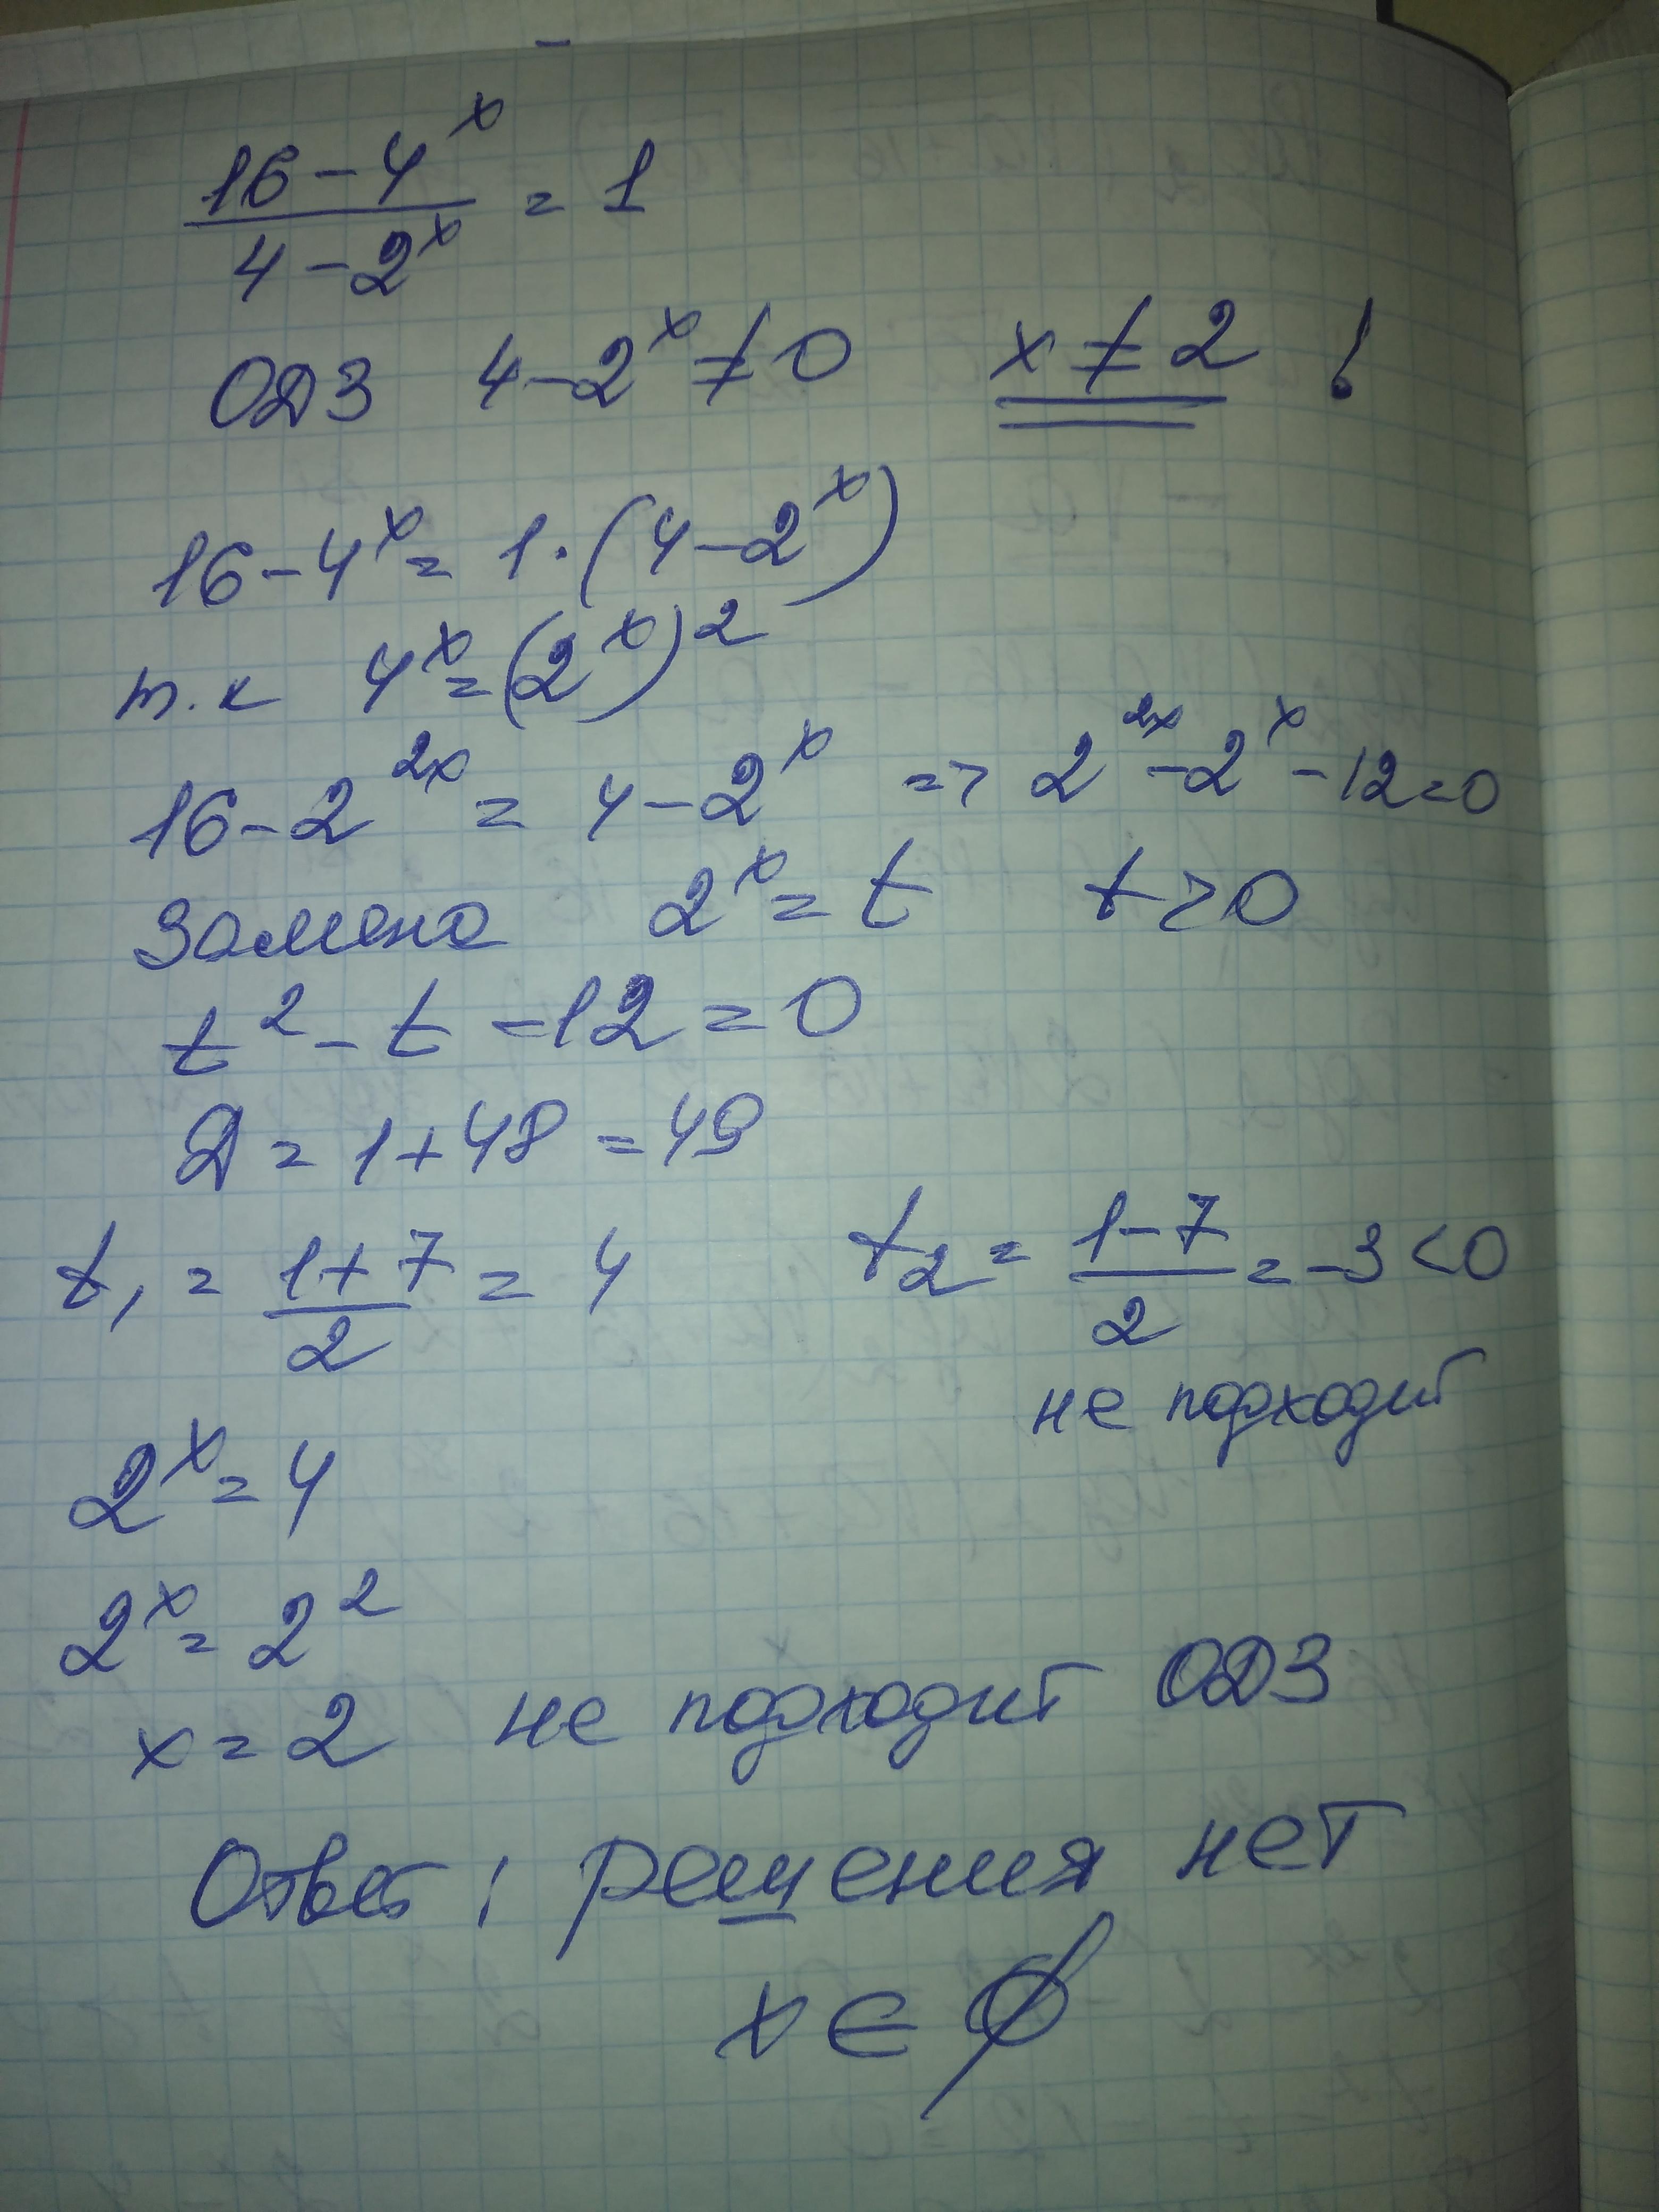 16-4^x
4-2^x
= 1
ОДЗ 4-2^x≠0 x≠2 !
16-4^x = 1·(4-2^x)
т.к 4^x=(2^x)^2
16-2^2x = 4-2^x => 2^2x-2^x-12=0
Замена 2^x=t t>0
t^2-t-12=0
Д=1+48=49
t1 = (1+7)/2 = 4 t2 = (1-7)/2 = -3<0
не подходит
2^x=4
2^x=2^2
x=2 не подходит ОДЗ
Ответ: решения нет
x∈∅